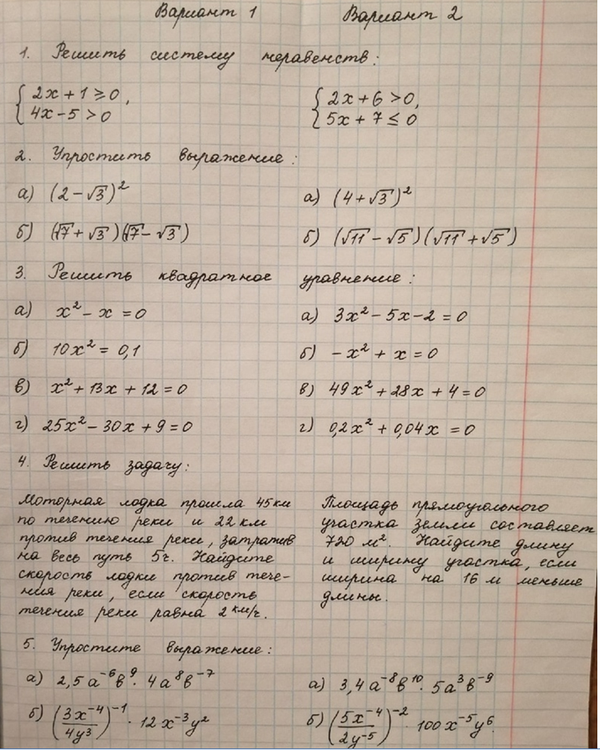 Вариант 1 Вариант 2
1. Решить систему неравенств:
{ 2x + 1 ≥ 0, { 2x + 6 > 0,
4x − 5 > 0 5x + 7 ≤ 0
2. Упростить выражение:
а) (2 − √3)² а) (4 + √3)²
б) (√7 + √3)(√7 − √3) б) (√11 − √5)(√11 + √5)
3. Решить квадратное уравнение:
а) x² − x = 0 а) 3x² − 5x − 2 = 0
б) 10x² = 0,1 б) −x² + x = 0
в) x² + 13x + 12 = 0 в) 49x² + 28x + 4 = 0
г) 25x² − 30x + 9 = 0 г) 0,2x² + 0,04x = 0
4. Решить задачу:
Моторная лодка прошла 45 км
по течению реки и 22 км
против течения реки, затратив
на весь путь 5ч. Найдите
скорость лодки против тече-
ния реки, если скорость
течения реки равна 2 км/ч.
Площадь прямоугольного
участка земли составляет
720 м² Найдите длину
и ширину участка, если
ширина на 16 м меньше
длины.
5. Упростите выражение:
а) 2,5a⁻⁶b⁹ · 4a⁸b⁻⁷ а) 3,4a⁻⁸b¹⁰ · 5a³b⁻⁹
б) (3x⁻⁴/4y³)⁻¹ · 12x⁻³y² б) (5x⁻⁴/2y⁻⁵)⁻² · 100x⁻⁵y⁶